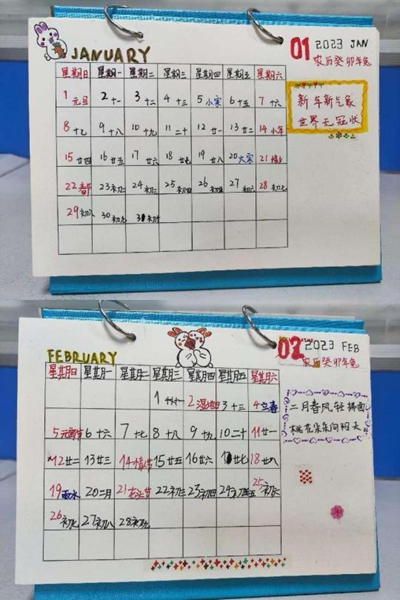 JANUARY
01 2023 JAN
农历癸卯年兔
星期日 星期一 星期二 星期三 星期四 星期五 星期六
1元旦 2十一 3十二 4十三 5小寒 6十五 7十六
8十七 9十八 10十九 11二十 12廿一 13廿二 14小年
15廿四 16廿五 17廿六 18廿七 19廿八 20大寒 21
22春节 23初二 24初三 25初四 26初五 27初六 28初七
29初八 30初九 31初十
新年新气象
世界无冠状
FEBRUARY
02 2023 FEB
农历癸卯年兔
星期日 星期一 星期二 星期三 星期四 星期五 星期六
1十一 2湿地日 3十三 4立春
5元宵节 6十六 7十七 8十八 9十九 10二十 11廿一
12廿二 13廿三 14情人节 15廿五 16廿六 17廿七 18廿八
19雨水 20二月 21 22初三 23初四 24初五 25初六
26初七 27初八 28初九
二月春风轻拂面
桃花朵朵向阳天